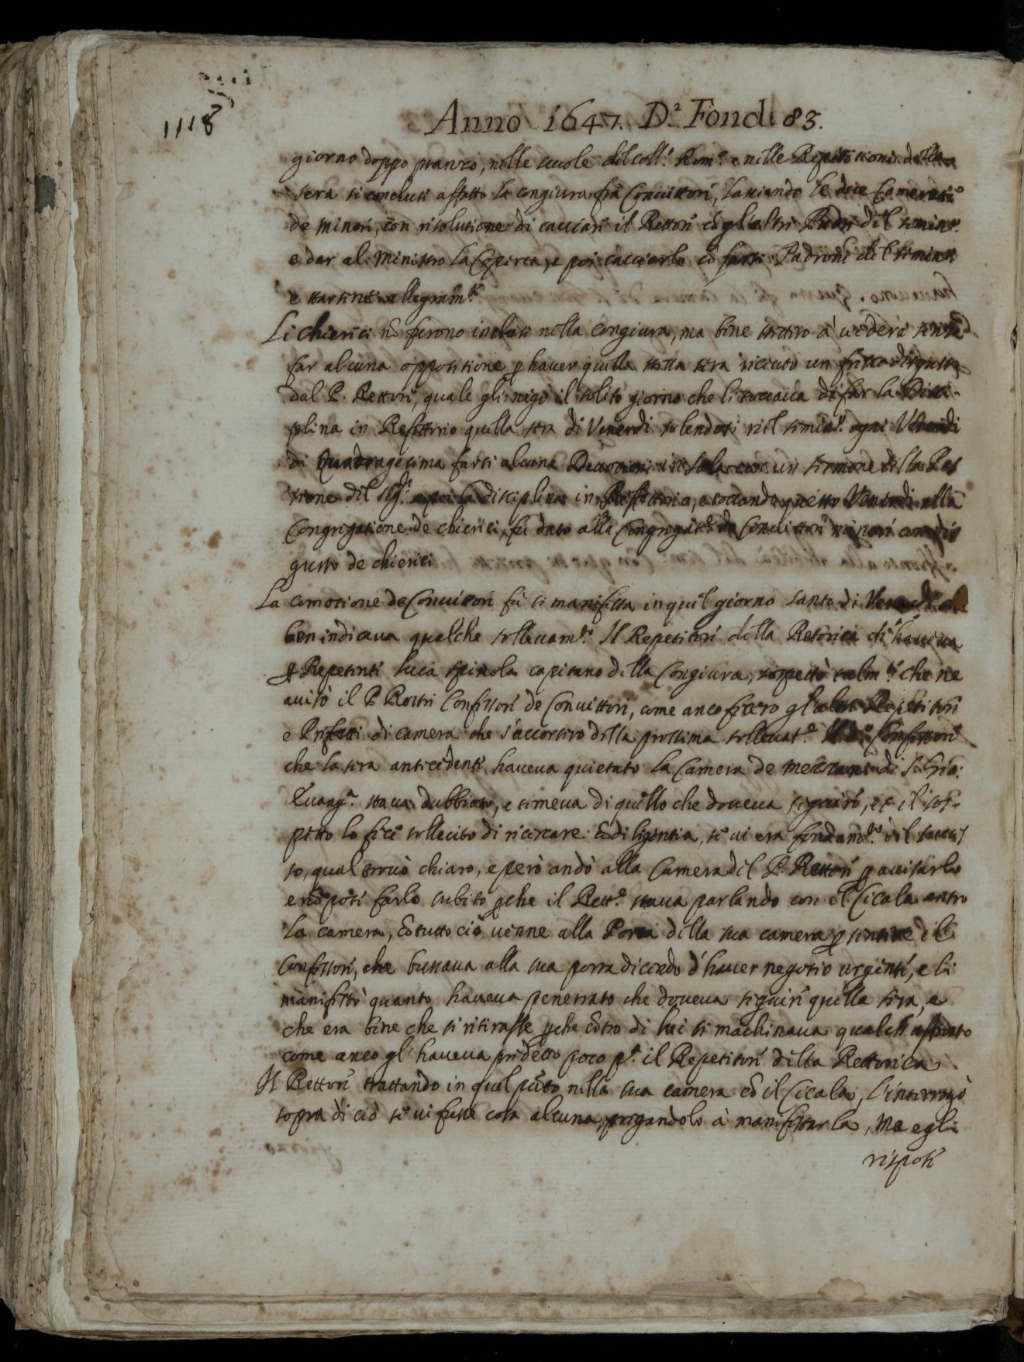 1118
Anno 1647. D.ª Fond: 83.
giorno doppo pranzo, nelle scuole del Coll.º Rom.º e nelle Repetitioni della
sera si concluse affatto la congiura frà Convittori, lasciando le due Camerate
de minori, con risolutione di cacciare il Rettore cō gl'altri Padri del semin.º
e dar al Ministro la Coperta, e poi cacciarlo cō farsi Padroni del semin.º
e starsene allegram.te
Li chierici nō furono inclusi nella congiura, ma bene stettero à vedere senza
far alcuna oppositione p haver quella stessa sera ricevuto un disgusto
dal P. Rettore, quale gli negò il solito giorno che li toccava di far la Disci-
plina in Refettorio quella sera di Venerdì solendosi nel semin.º ogni Venerdì
di Quadragesima farsi alcuna Devotione in sala cioè un sermone della Pas
sione del Sig.re e poi la disciplina in Refettorio, e toccando questo Venerdì alla
Congregatione de chierici, fù dato alla Congregat.e de Convittori minori con dis
gusto de chierici
La comotione de Convittori fù si manifesta in quel giorno santo di Venerdì che
ben indicava qualche sollevam.to Il Repetitore della Retorica che haveva
p Repetente Luca Spinola capitano della Congiura, sospettò talm.te che ne
avisò il P. Rostri Confessore de Convittori, come anco fecero gl'altri Repetitori
e Prefetti di camera che s'accorsero della prossima sollevat.e Il Confessore
che la sera antecedente haveva quietato la Camera de mezzani di S. Gio:
Evang.ta stava dubbioso, e temeva di quello che doveva seguire, e il sos-
petto lo fece sollecito di ricercare cō diligentia, se vi era fondam.to del
to, qual trovò chiaro, e però andò alla Camera del P. Rettore p avisarlo
e nō potè farlo subito pche il Rett.e stava parlando con il Cicala entro
la camera, cō tutto ciò venne alla Porta della sua camera p sentire il
Confessore, che bussava alla sua porta dicendo d'haver negotio urgente, e li
manifestò quanto haveva penetrato che doveva seguire quella sera, e
che era bene che si ritirasse pche cōtro di lui si machinava qualch'affronto
come anco gl'haveva predetto poco p.ª il Repetitore della Rettorica.
Il Rettore trattando in quel pūto nella sua camera cō il Cicala, l'interrogò
sopra di ciò se vi fusse cosa alcuna, pregandolo à manifestarla, Ma egli
rispose